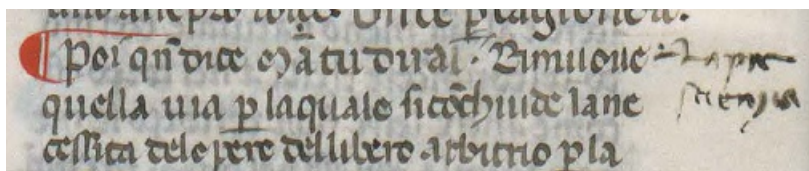 Poi qn̄ dice Mā tu dirai. Rimuove
quella uia ꝑ laquale si cōchiude lane
cessita delopere dellibero arbitrio ꝑ la